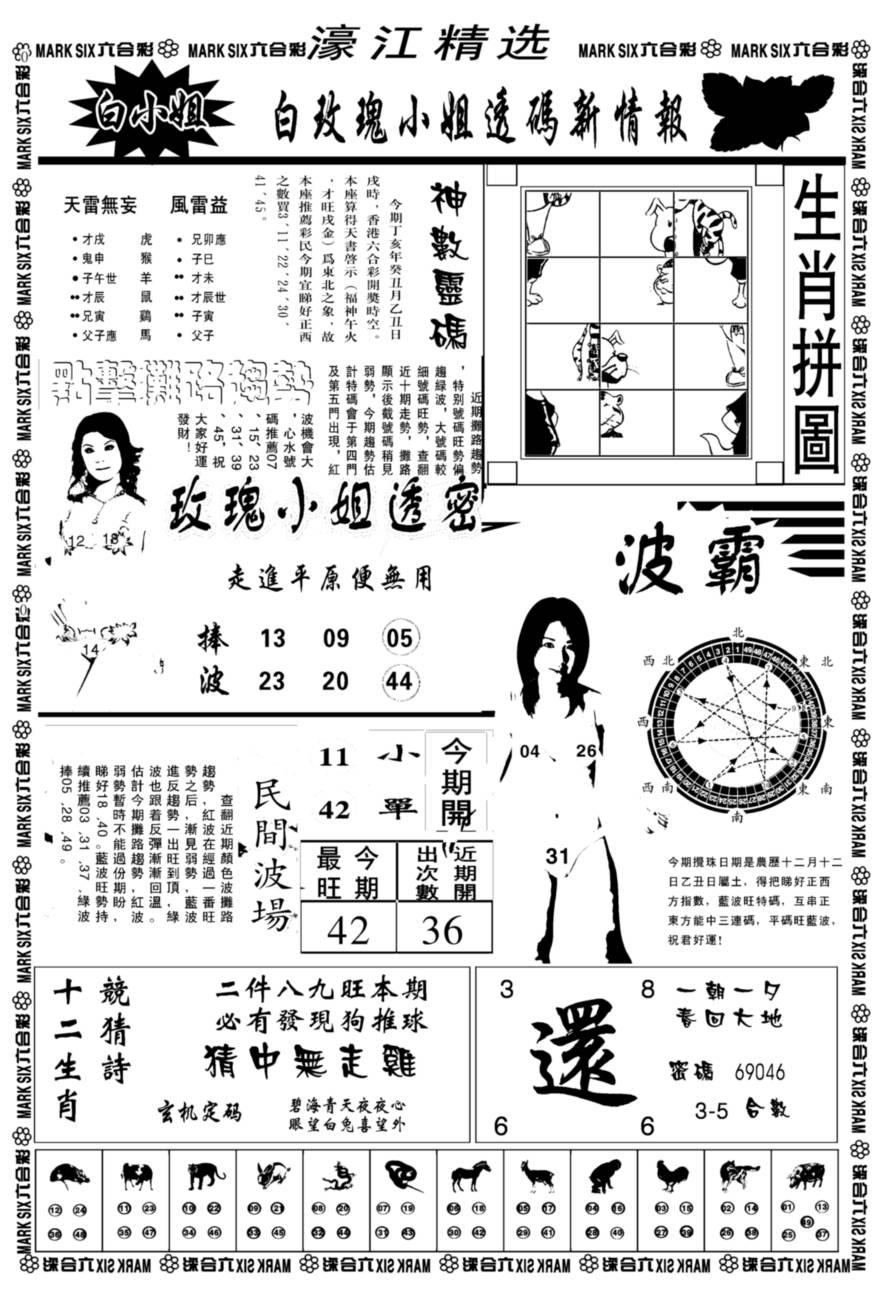 濠江精选
MARK SIX六合彩 MARK SIX六合彩 MARK SIX六合彩 MARK SIX六合彩
白小姐
白玫瑰小姐透碼新情報
天雷無妄 風雷益
• 才戌 虎 • 兄卯應
• 鬼申 猴 • 子巳
• 子午世 羊 •• 才未
•• 才辰 鼠 •• 才辰世
•• 兄寅 鷄 •• 子寅
• 父子應 馬 • 父子
神數靈碼
今期丁亥年癸丑月乙丑日
戌時，香港六合彩開獎時空。
本座算得天書啓示（福神午火
，才旺戌金）爲東北之象，故
本座推薦彩民今期宜睇好正西
之數買3、11、22、24、30、
41、45。
生肖拼圖
點擊攤路趨勢
近期攤路趨勢
，特别號碼旺勢偏
趨緑波，大號碼較
細號碼旺勢，查翻
近十期走勢，攤路
顯示後截號碼稍見
弱勢，今期趨勢估
計特碼會于第四門
及第五門出現，紅
波機會大
，心水號
碼推薦07
、15、23
、31、39
、45，祝
大家好運
發財！
12 18
14
玫瑰小姐透密
走進平原便無用
捧 13 09 05
波 23 20 44
波霸
04 26
31
北
西北 東北
西 東
西南 東南
南
今期攪珠日期是農歷十二月十二
日乙丑日屬土，得把睇好正西
方指數，藍波旺特碼，互串正
東方能中三連碼，平碼旺藍波，
祝君好運!
民間波場
查翻近期顏色波攤路
趨勢，紅波在經過一番旺
勢之后，漸見弱勢，藍波
進反趨勢一出旺到頂，緑
波也跟着反彈漸漸回溫。
估計今期攤路趨勢，紅波
弱勢暫時不能過份期盼，
睇好18.40。藍波旺勢持
續推薦03.31.37.緑波
捧05.28.49。
11 小
42 單
今期開
最旺 今期
出次數 近期開
42 36
十二生肖
競猜詩
二件八九旺本期
必有發現狗推球
猜中無走雞
玄机定码
碧海青天夜夜心
眼望白兔喜望外
3 8
還
6 6
一朝一夕
春回大地
密碼 69046
3-5 合數
12 24 11 23 10 22 09 21 08 20 07 19 06 18 05 17 04 16 03 15 02 14 01 13
36 48 35 47 34 46 33 45 32 44 31 43 30 42 29 41 28 40 27 39 26 38 25 37 49
MARK SIX六合彩 MARK SIX六合彩 MARK SIX六合彩 MARK SIX六合彩 MARK SIX六合彩 MARK SIX六合彩